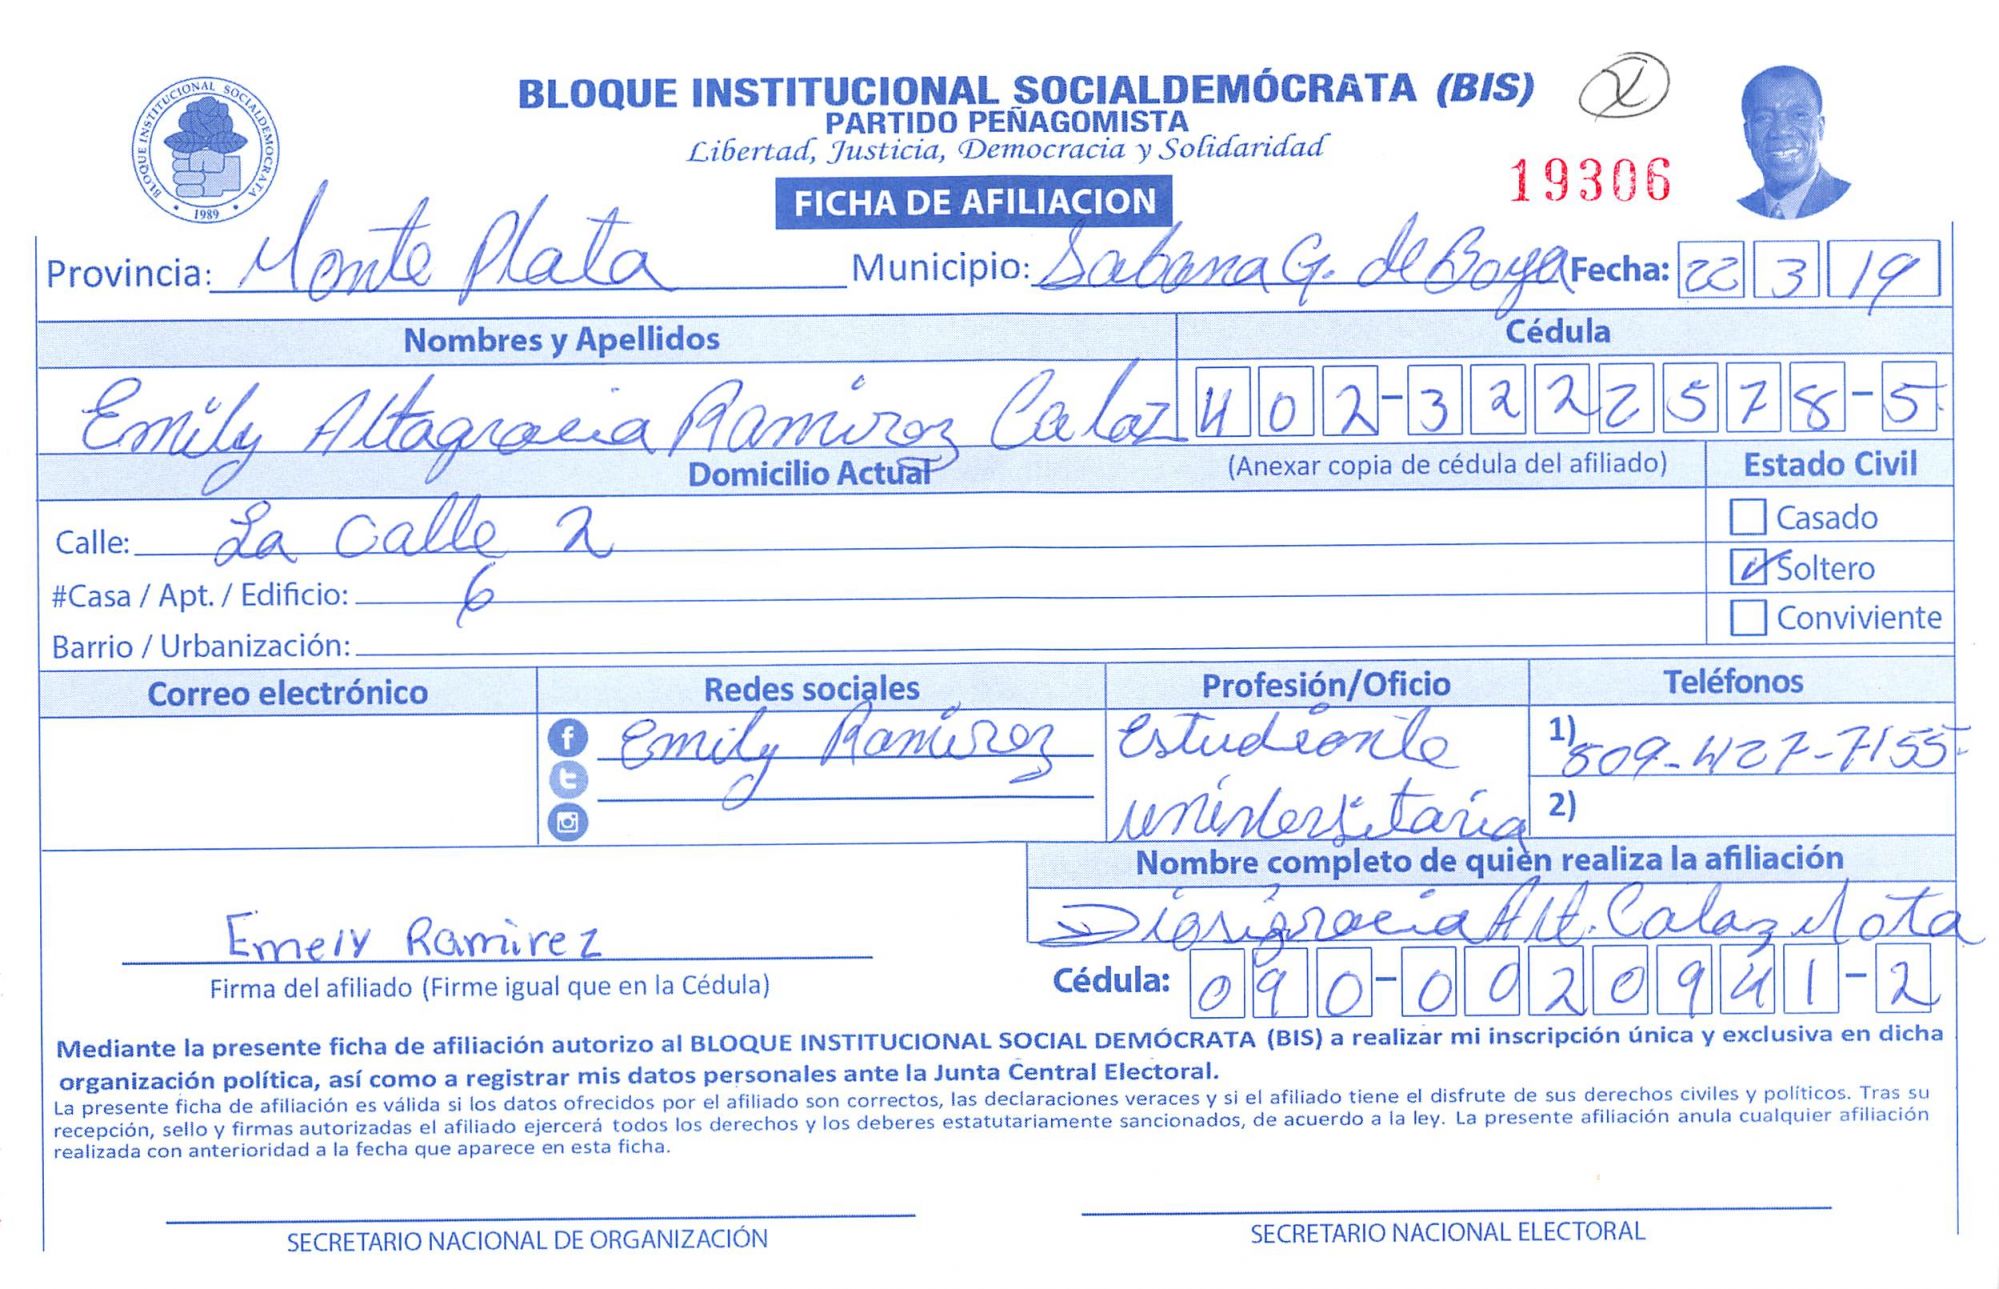 BLOQUE INSTITUCIONAL SOCIALDEMÓCRATA (BIS)
PARTIDO PEÑAGOMISTA
Libertad, Justicia, Democracia y Solidaridad
19306
BLOQUE INSTITUCIONAL SOCIALDEMOCRATA
1989
FICHA DE AFILIACION
Provincia: Monte Plata Municipio: Sabana G. de Boya Fecha: 22 3 19
Nombres y Apellidos Cédula
Emily Altagracia Ramirez Calaz 402-3222578-5
Domicilio Actual (Anexar copia de cédula del afiliado) Estado Civil
Calle: La Calle 2 Casado
#Casa / Apt. / Edificio: 6 Soltero
Barrio / Urbanización: Conviviente
Correo electrónico Redes sociales Profesión/Oficio Teléfonos
Emily Ramirez Estudiante 1) 809-427-7155
universitaria 2)
Nombre completo de quien realiza la afiliación
Alt. Calaz Mota
Emely Ramirez
Firma del afiliado (Firme igual que en la Cédula) Cédula: 090-0020941-2
Mediante la presente ficha de afiliación autorizo al BLOQUE INSTITUCIONAL SOCIAL DEMÓCRATA (BIS) a realizar mi inscripción única y exclusiva en dicha
organización política, así como a registrar mis datos personales ante la Junta Central Electoral.
La presente ficha de afiliación es válida si los datos ofrecidos por el afiliado son correctos, las declaraciones veraces y si el afiliado tiene el disfrute de sus derechos civiles y políticos. Tras su
recepción, sello y firmas autorizadas el afiliado ejercerá todos los derechos y los deberes estatutariamente sancionados, de acuerdo a la ley. La presente afiliación anula cualquier afiliación
realizada con anterioridad a la fecha que aparece en esta ficha.
SECRETARIO NACIONAL DE ORGANIZACIÓN SECRETARIO NACIONAL ELECTORAL